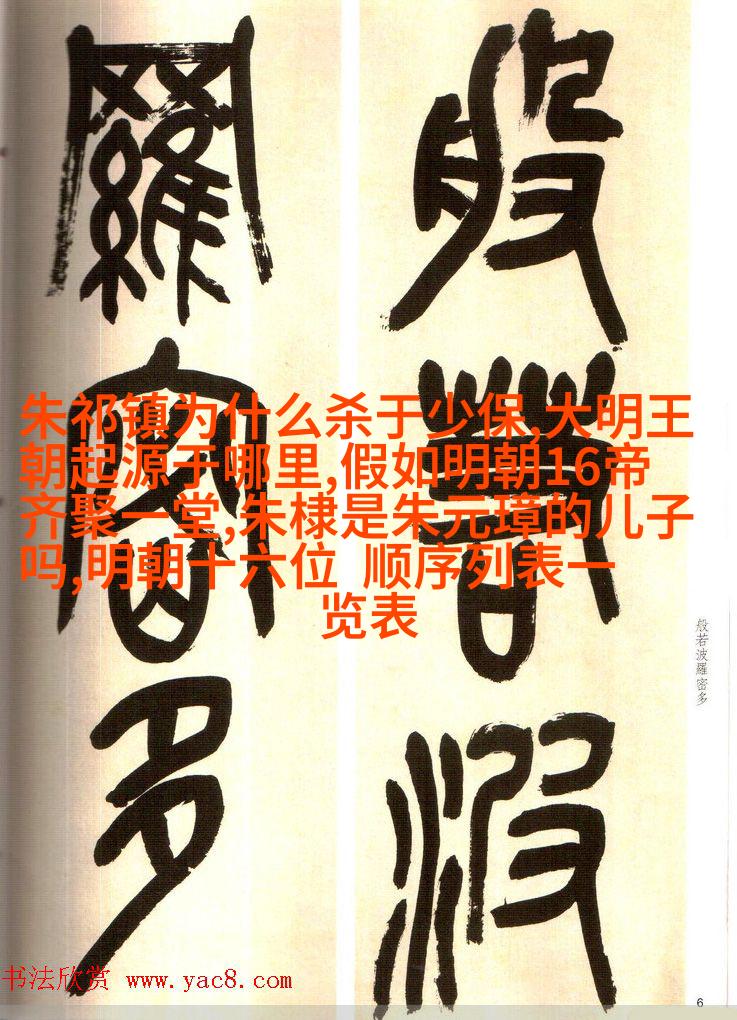 般若波
羅密多
朱祁镇为什么杀于少保,大明王
朝起源于哪里,假如明朝16帝
齐聚一堂,朱棣是朱元璋的儿子
吗,明朝十六位 顺序列表一
览表
般若波羅密多
书法欣赏 www.yac8.com
6